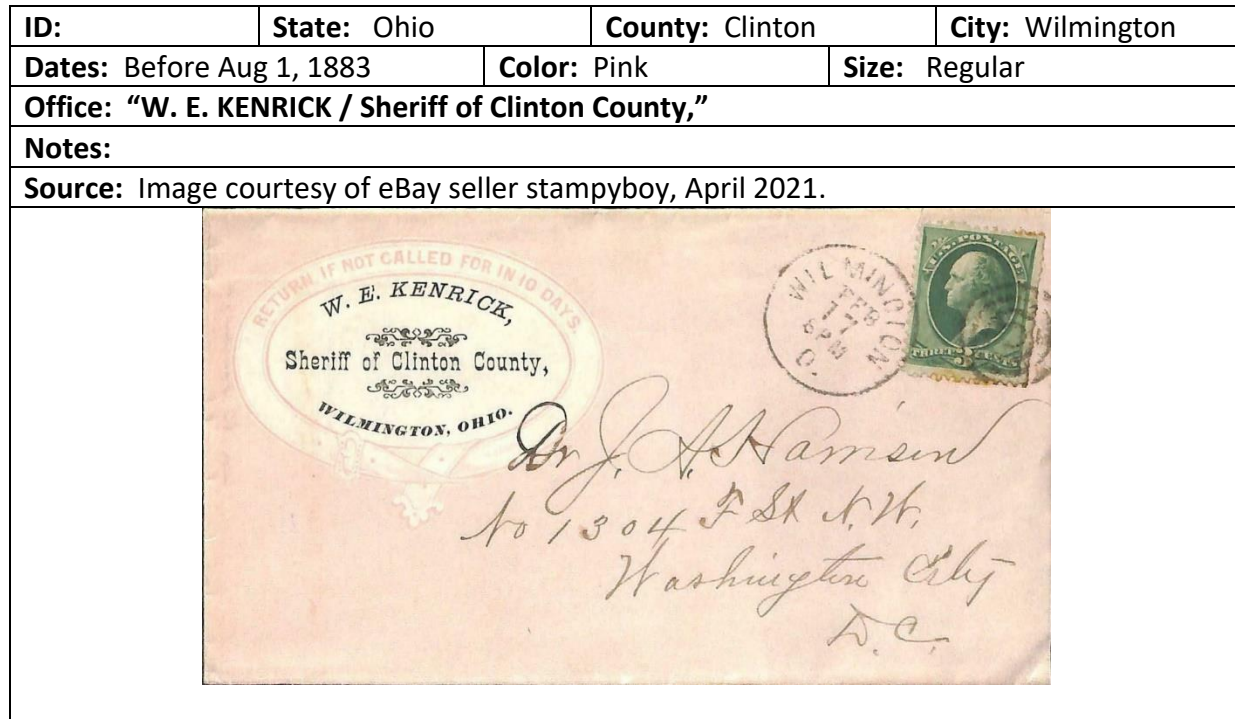 ID: State: Ohio County: Clinton City: Wilmington
Dates: Before Aug 1, 1883 Color: Pink Size: Regular
Office: “W. E. KENRICK / Sheriff of Clinton County,”
Notes:
Source: Image courtesy of eBay seller stampyboy, April 2021.
RETURN IF NOT CALLED FOR IN 10 DAYS.
W. E. KENRICK,
Sheriff of Clinton County,
WILMINGTON, OHIO.
WILMINGTON
FEB
17
6 PM
O.
U.S. POSTAGE
THREE 3 CENTS
Dr J. A. Harrison
No 1304 F St N.W.
Washington City
D.C.